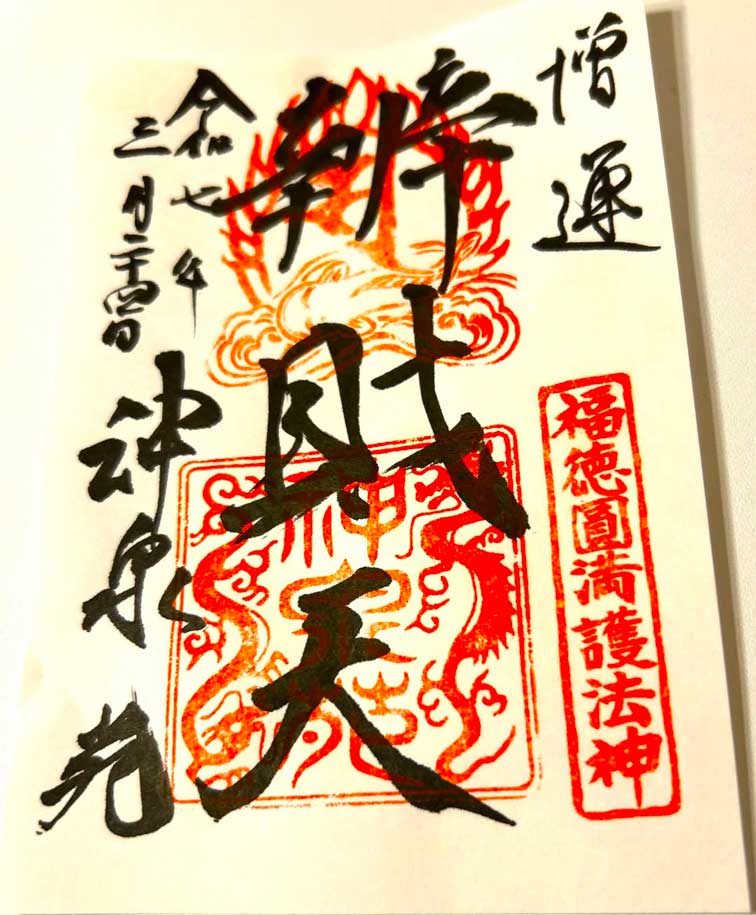 増運
福徳圓満護法神
辨財天
令和七年
三月二十四日
神泉苑